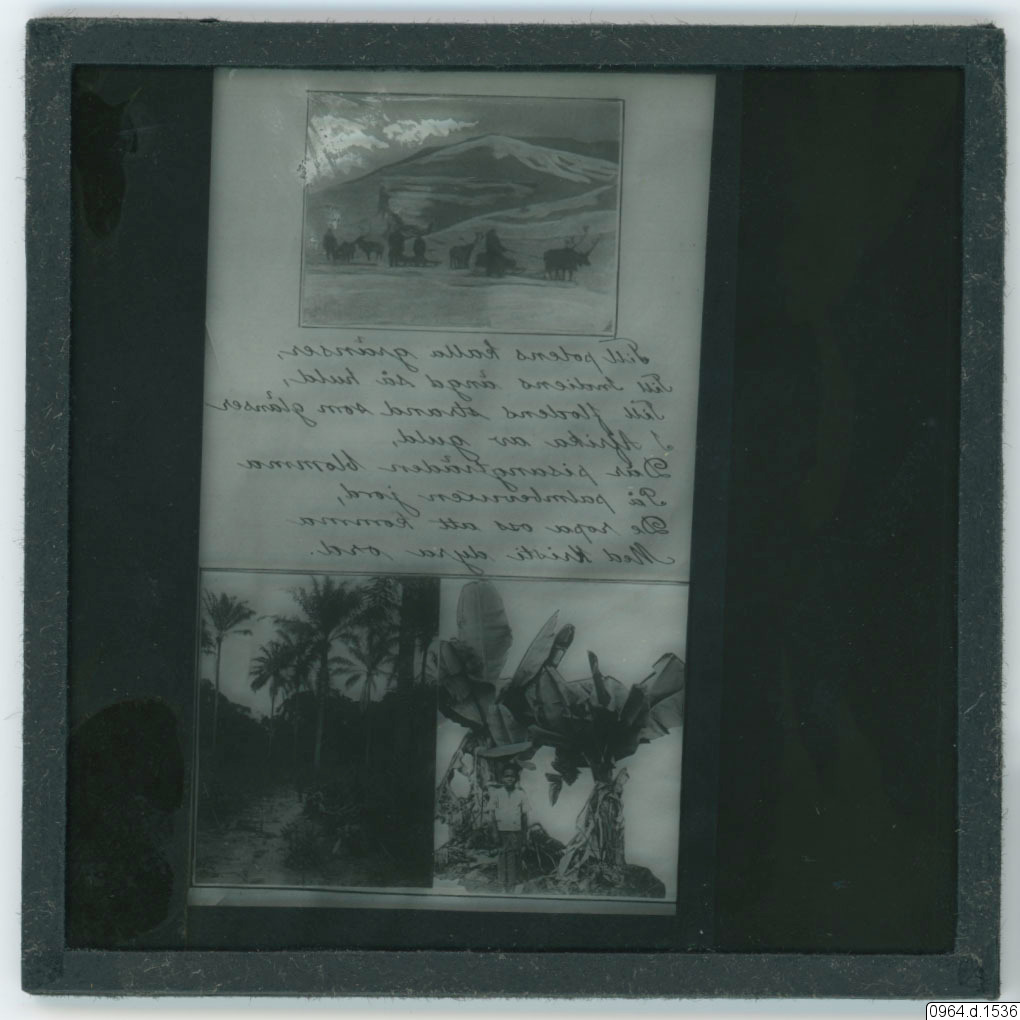 Till polens kalla gränser,
Till Indiens ängd så huld,
Till flodens strand som glänser
I Afrika av guld,
Där pisangträden blomma
På palmbevuxen jord,
De ropa oss att komma
Med Kristi dyra ord.
0964.d.1536